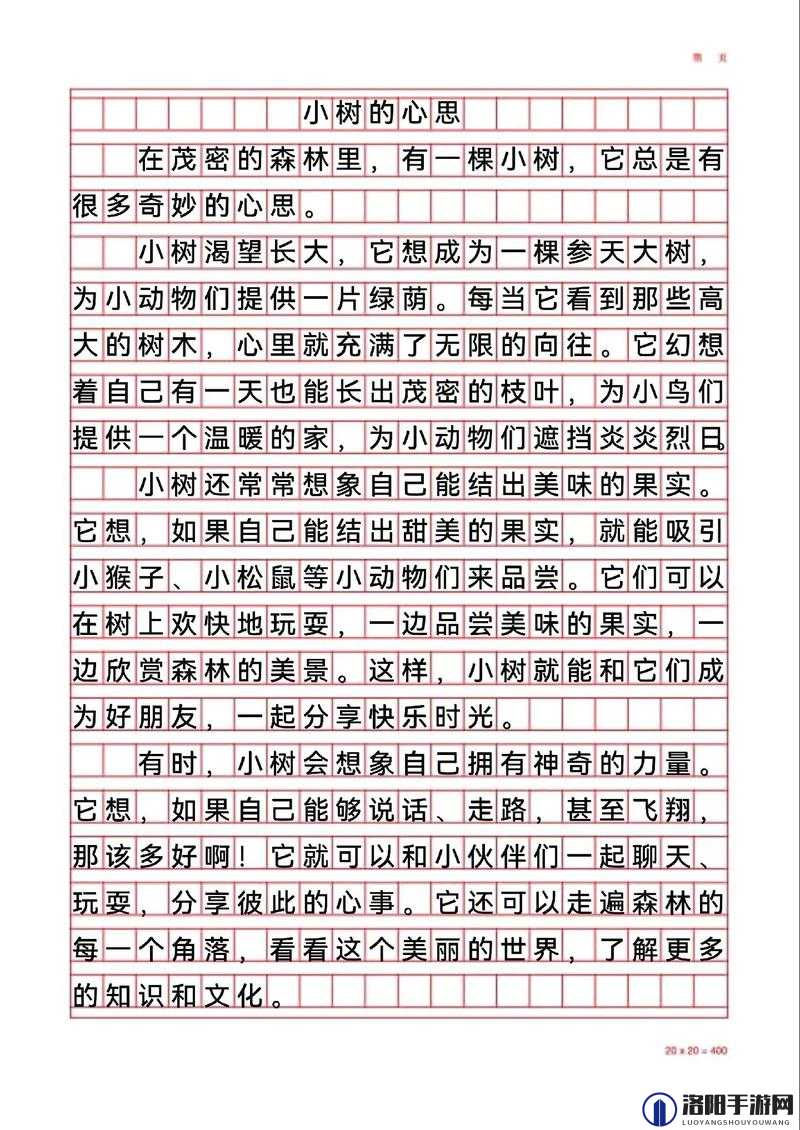 第 页
小树的心思
在茂密的森林里，有一棵小树，它总是有
很多奇妙的心思。
小树渴望长大，它想成为一棵参天大树，
为小动物们提供一片绿荫。每当它看到那些高
大的树木，心里就充满了无限的向往。它幻想
着自己有一天也能长出茂密的枝叶，为小鸟们
提供一个温暖的家，为小动物们遮挡炎炎烈日。
小树还常常想象自己能结出美味的果实。
它想，如果自己能结出甜美的果实，就能吸引
小猴子、小松鼠等小动物们来品尝。它们可以
在树上欢快地玩耍，一边品尝美味的果实，一
边欣赏森林的美景。这样，小树就能和它们成
为好朋友，一起分享快乐时光。
有时，小树会想象自己拥有神奇的力量。
它想，如果自己能够说话、走路，甚至飞翔，
那该多好啊！它就可以和小伙伴们一起聊天、
玩耍，分享彼此的心事。它还可以走遍森林的
每一个角落，看看这个美丽的世界，了解更多
的知识和文化。
20 x 20 = 400
洛阳手游网
LUOYANGSHOUYOUWANG